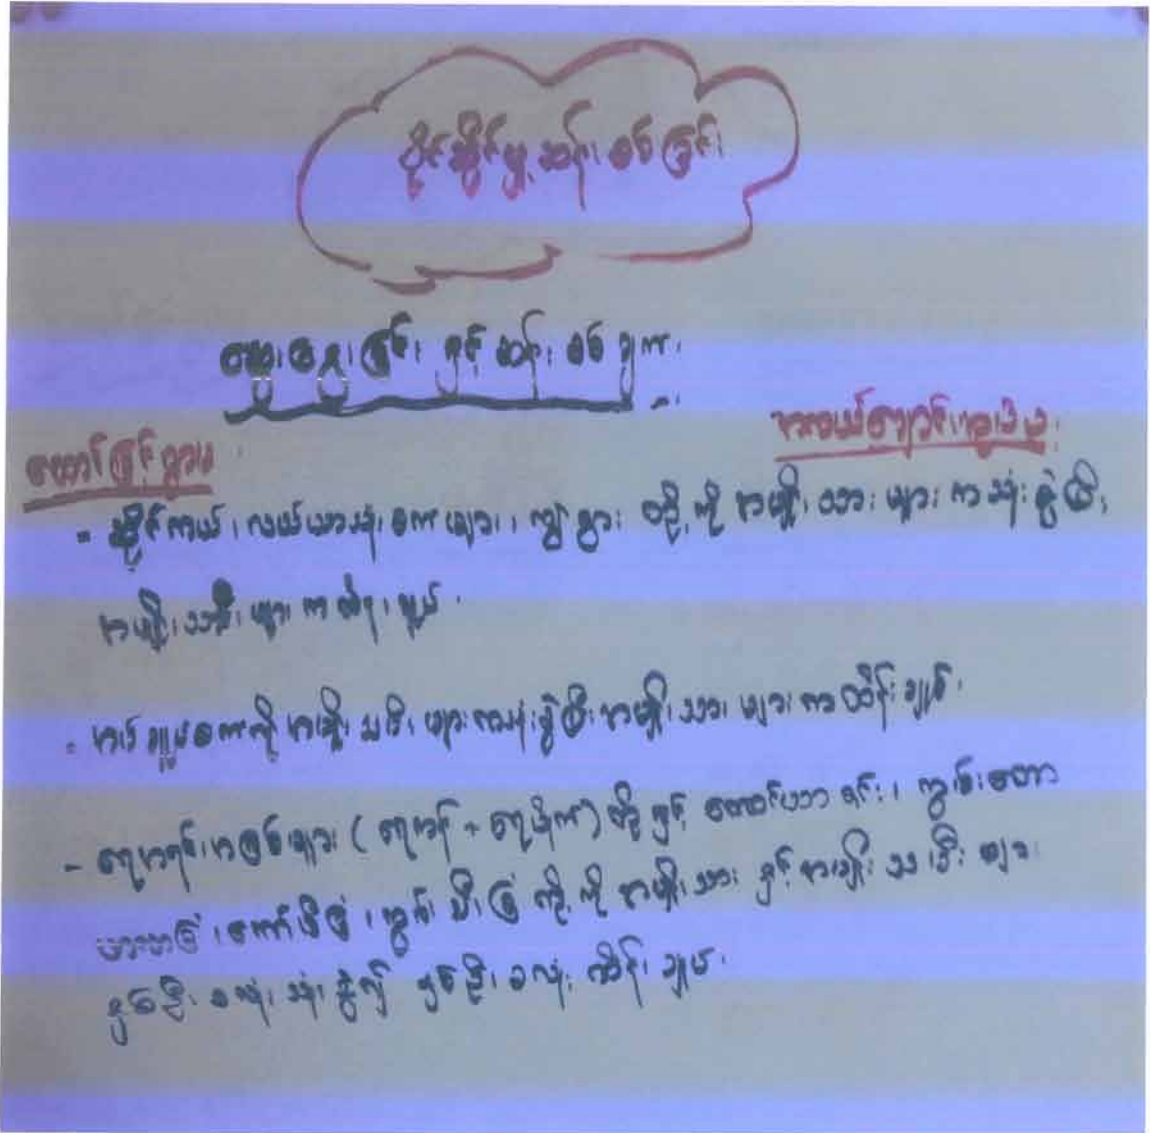 ပိုင်ဆိုင်မှု ဆန်းစစ်ခြင်း
ဆွေးနွေးခြင်း နှင့် ဆန်းစစ်ချက်
တောင်ခြင့်ရွာမ
- ဆိုင်ကယ်၊ လယ်ယာသုံးစက်များ၊ ကျွဲနွား တို့ကို အမျိုးသားများကသုံးစွဲပြီး
အမျိုးသမီးများက ထိန်းချုပ်
- အပ်ချုပ်စက်ကို အမျိုးသမီးများကသုံးစွဲပြီး အမျိုးသားများကထိန်းချုပ်
- ရေအရင်းအမြစ်များ (ရေကန် + ရေပိုက်) တို့နှင့် ၊ ကျွမ်းတော
၊ ကော်ဖီခြံ ၊ ကွမ်းသီးခြံ တို့ကို အမျိုးသား နှင့် အမျိုးသမီးများ
နှစ်ဦးစလုံး သုံးစွဲလို့ နှစ်ဦးစလုံး ထိန်းချုပ်